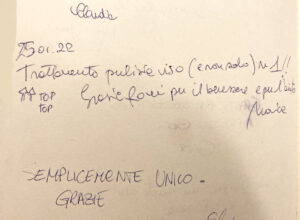 Claudia
25.01.20
Trattamento pulizia viso (e non solo) n 1!!
TOP Grazie per il benessere e per
TOP
SEMPLICEMENTE UNICO -
GRAZIE